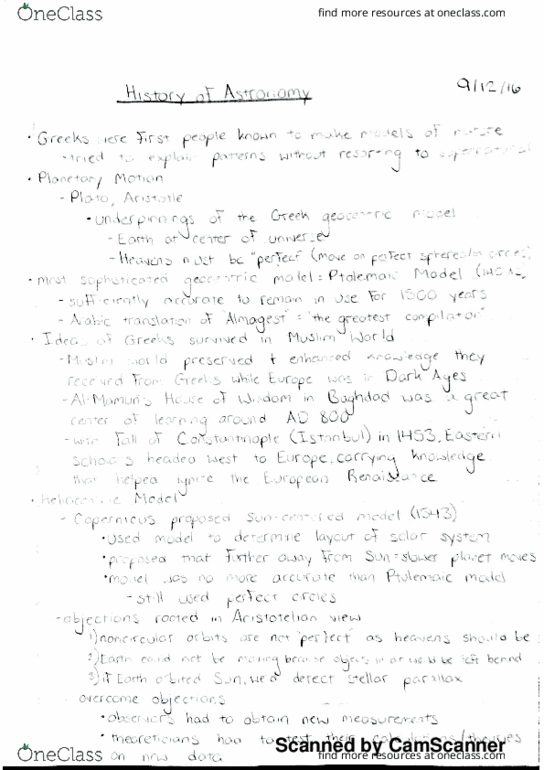 OneClass
find more resources at oneclass.com
History of Astronomy
9/12/16
• Greeks were first people known to make models of nature
- tried to explain patterns without resorting to supernatural
• Planetary Motion
- Plato, Aristotle
• underpinnings of the Greek geocentric model
- Earth at center of universe
- Heavens must be "perfect" (move on perfect spheres/or circles)
• most sophisticated geocentric model = Ptolemaic Model
- sufficiently accurate to remain in use for 1500 years
- Arabic translation of "Almagest" = "the greatest compilation"
• Ideas of Greeks survived in Muslim World
- Muslim world preserved + enhanced knowledge they
received from Greeks while Europe was in Dark Ages
- Al-Mamun's House of Wisdom in Baghdad was a great
center of learning around AD 800
- with fall of Constantinople (Istanbul) in 1453, Eastern
scholars headed west to Europe, carrying knowledge
that helped ignite the European Renaissance
• Heliocentric Model
- Copernicus proposed Sun-centered model (1543)
• used model to determine layout of solar system
• proposed that further away from Sun = slower planet moves
• model was no more accurate than Ptolemaic model
- still used perfect circles
- objections rooted in Aristotelian view
1) noncircular orbits are not "perfect" as heavens should be
2) Earth could not be moving because objects in air would be left behind
3) if Earth orbited Sun, we'd detect stellar parallax
overcome objections
• observers had to obtain new measurements
• theoreticians had to test their calculations/theories
on new data
Scanned by CamScanner
OneClass
find more resources at oneclass.com